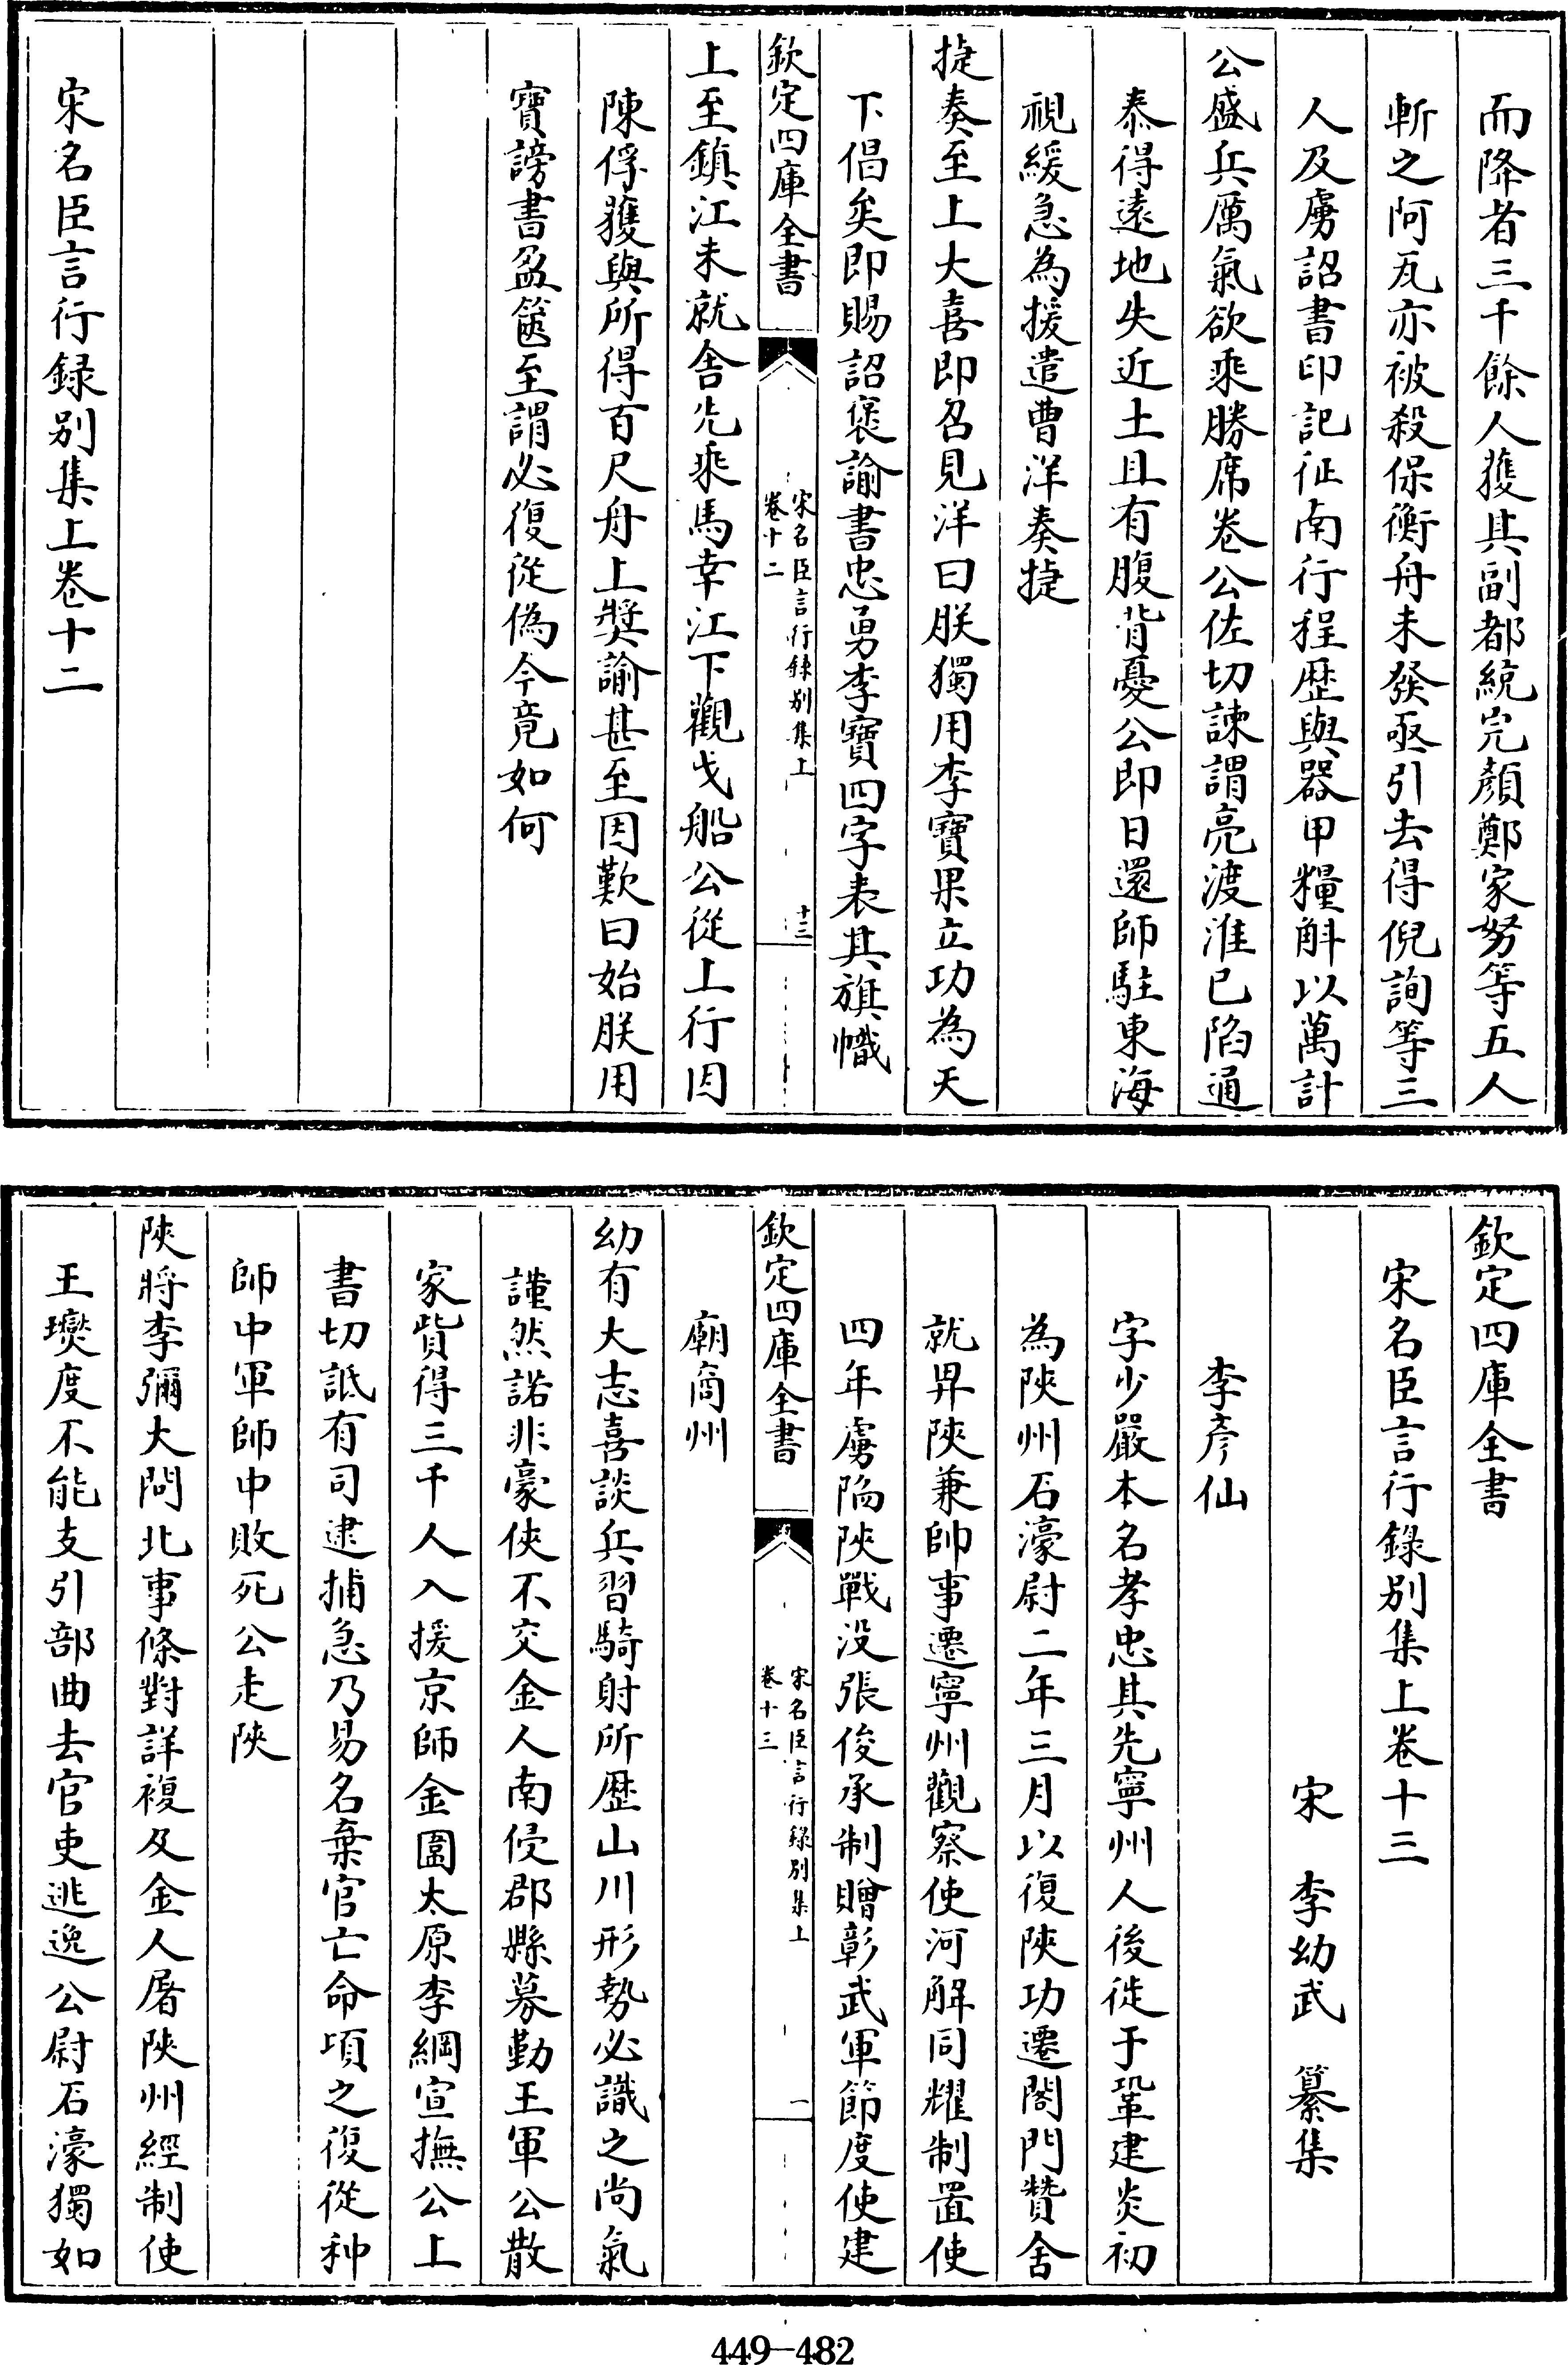 而降者三千餘人獲其副都統完顏鄭家努等五人
斬之阿瓦亦被殺保衡舟未發亟引去得倪詢等三
人及虜詔書印記征南行程歷與器甲糧斛以萬計
公盛兵厲氣欲乘勝席卷公佐切諫謂亮渡淮已陷通
泰得遠地失近土且有腹背憂公即日還師駐東海
視緩急為援遣曹洋奏捷
捷奏至上大喜即召見洋曰朕獨用李寶果立功為天
下倡矣即賜詔褒諭書忠勇李寶四字表其旗幟
欽定四庫全書
宋名臣言行録别集上
卷十二
十三
上至鎮江未就舍先乘馬幸江下觀戈船公從上行因
陳俘獲與所得百尺舟上奬諭甚至因歎曰始朕用
寶謗書盈篋至謂必復從偽今竟如何
宋名臣言行録别集上卷十二
欽定四庫全書
宋名臣言行錄别集上卷十三
宋 李幼武 纂集
李彥仙
字少嚴本名孝忠其先寧州人後徙于鞏建炎初
為陜州石濠尉二年三月以復陜功遷閤門贊舍
就昇陜兼帥事遷寧州觀察使河解同耀制置使
四年虜陷陜戰没張俊承制贈彰武軍節度使建
欽定四庫全書
宋名臣言行録别集上
卷十三
一
廟商州
幼有大志喜談兵習騎射所歴山川形勢必識之尚氣
謹然諾非豪俠不交金人南侵郡縣募勤王軍公散
家貲得三千人入援京師金圍太原李綱宣撫公上
書切詆有司逮捕急乃易名棄官亡命頃之復從种
師中軍師中敗死公走陜
陜將李彌大問北事條對詳複及金人屠陜州經制使
王𤫉度不能支引部曲去官吏逃逸公尉石濠獨如
449—482